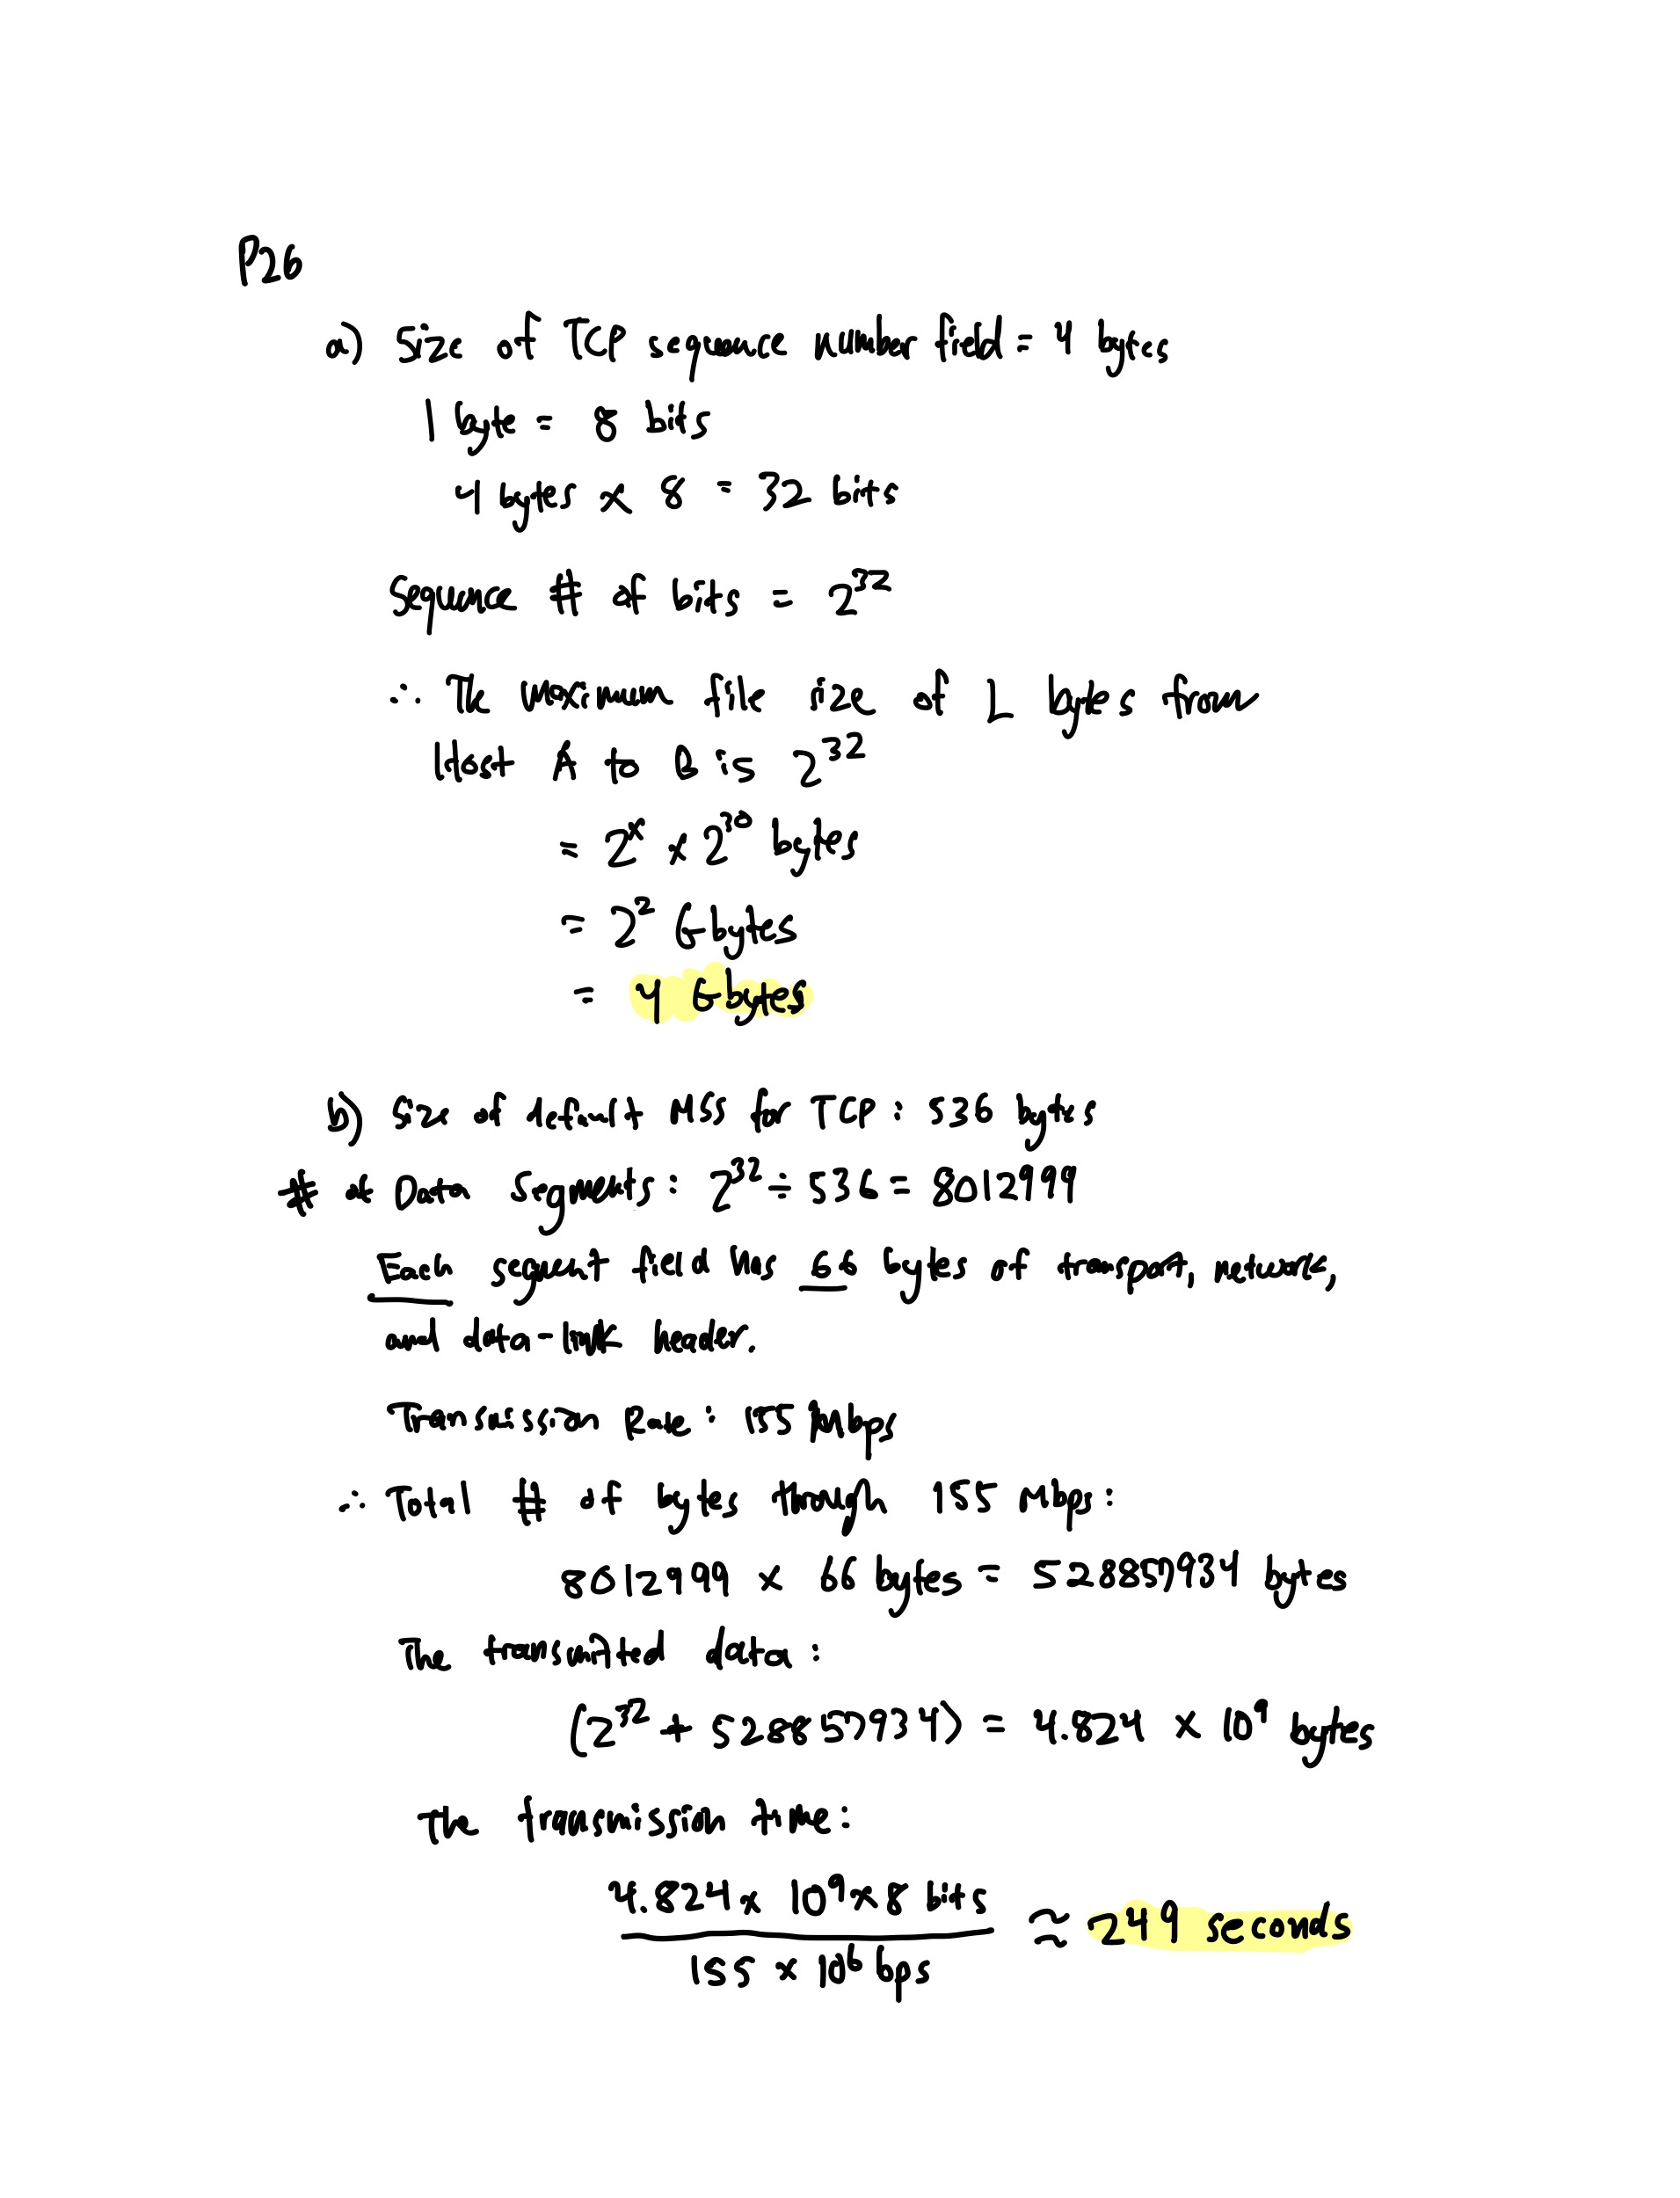 P26
a) Size of TCP sequence number field = 4 bytes
1 byte = 8 bits
4 bytes x 8 = 32 bits
Sequence # of bits = 2^32
∴ The maximum file size of L bytes from
Host A to B is 2^32
= 2^x x 2^30 bytes
= 2^2 Gbytes
= 4 Gbytes
b) Size of default MSS for TCP : 536 bytes
# of Data Segments : 2^32 ÷ 536 = 8012999
Each segment field has 66 bytes of transport, network,
and data-link header.
Transmission Rate : 155 Mbps
∴ Total # of bytes through 155 Mbps :
8012999 x 66 bytes = 528857934 bytes
The transmitted data :
(2^32 + 528857934) = 4.824 x 10^9 bytes
The transmission time :
4.824 x 10^9 x 8 bits
≈ 249 seconds
155 x 10^6 bps